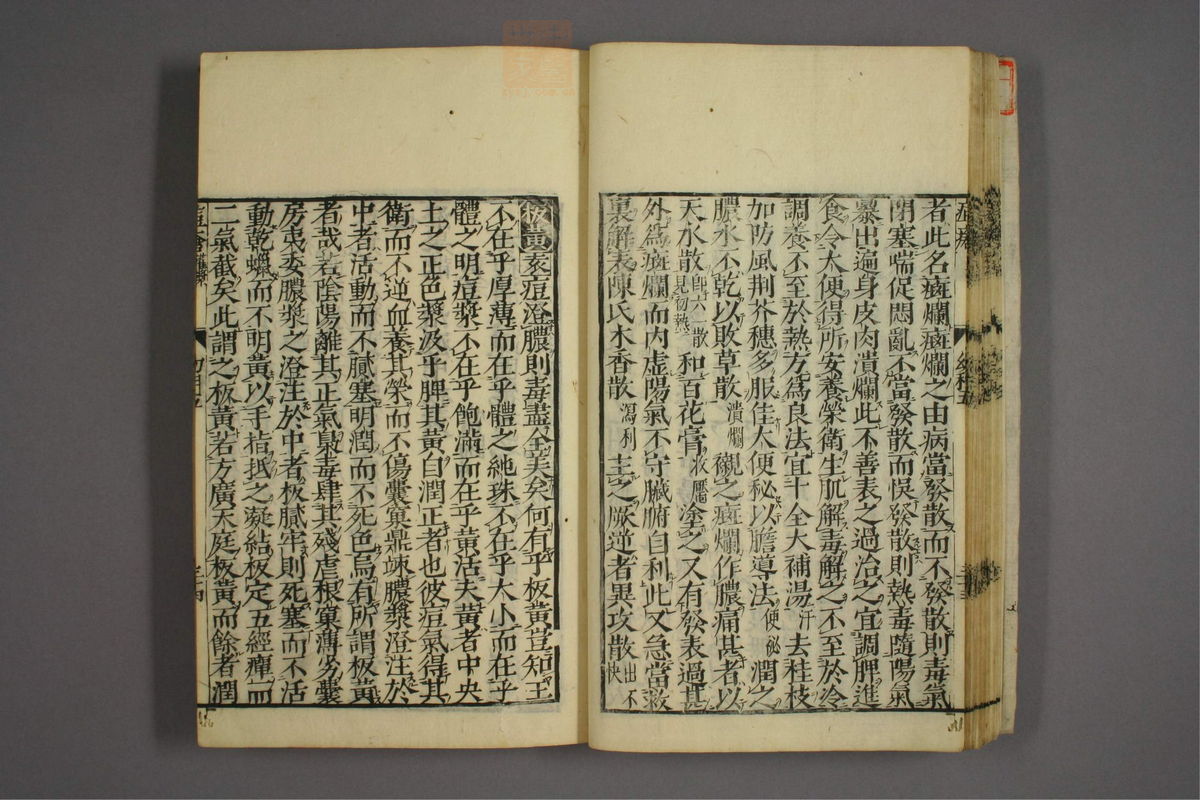 者此名癍爛癍爛之由病當發散而不發散則毒氣
閉塞喘促悶亂不當發散而悞發散則熱毒隨陽氣
暴出遍身皮肉潰爛此不善表之過治之宜調脾進
食令大便得所安養榮衛生肌解毒解之不至於冷
調養不至於熱方爲良法宜十全大補湯汗去桂枝
加防風荆芥穗多服佳大便秘以膽導法便秘潤之
膿水不乾以敗草散潰爛襯之癍爛作膿痛甚者以
天水散卽六一散見初熱和百花膏收靨塗之又有發表過甚
外爲癍爛而内虚陽氣不守臟腑自利此又急當救
裏解表陳氏木香散瀉利主之厥逆者異攻散出不快
板黄家痘澄膿則毒盡全美矣何有乎板黄豈知玉
不在乎厚薄而在乎體之純珠不在乎大小而在乎
體之明痘漿不在乎飽滿而在乎黄活夫黄者中央
土之正色漿汲乎脾其黄自潤正者也彼痘氣得其
衛而不逆血養其榮而不傷囊窠鼎竦膿漿澄注於
中者活動而不膩塞明潤而不死色烏有所謂板黄
者哉若陰陽離其正氣梟毒肆其殘虐根窠薄劣囊
房夷委膿漿之澄注於中者板膩牢則死塞而不活
動乾蠟而不明黄以手指抵之凝結板定五經癉而
二氣截矣此謂之板黄若方廣天庭板黄而餘者潤